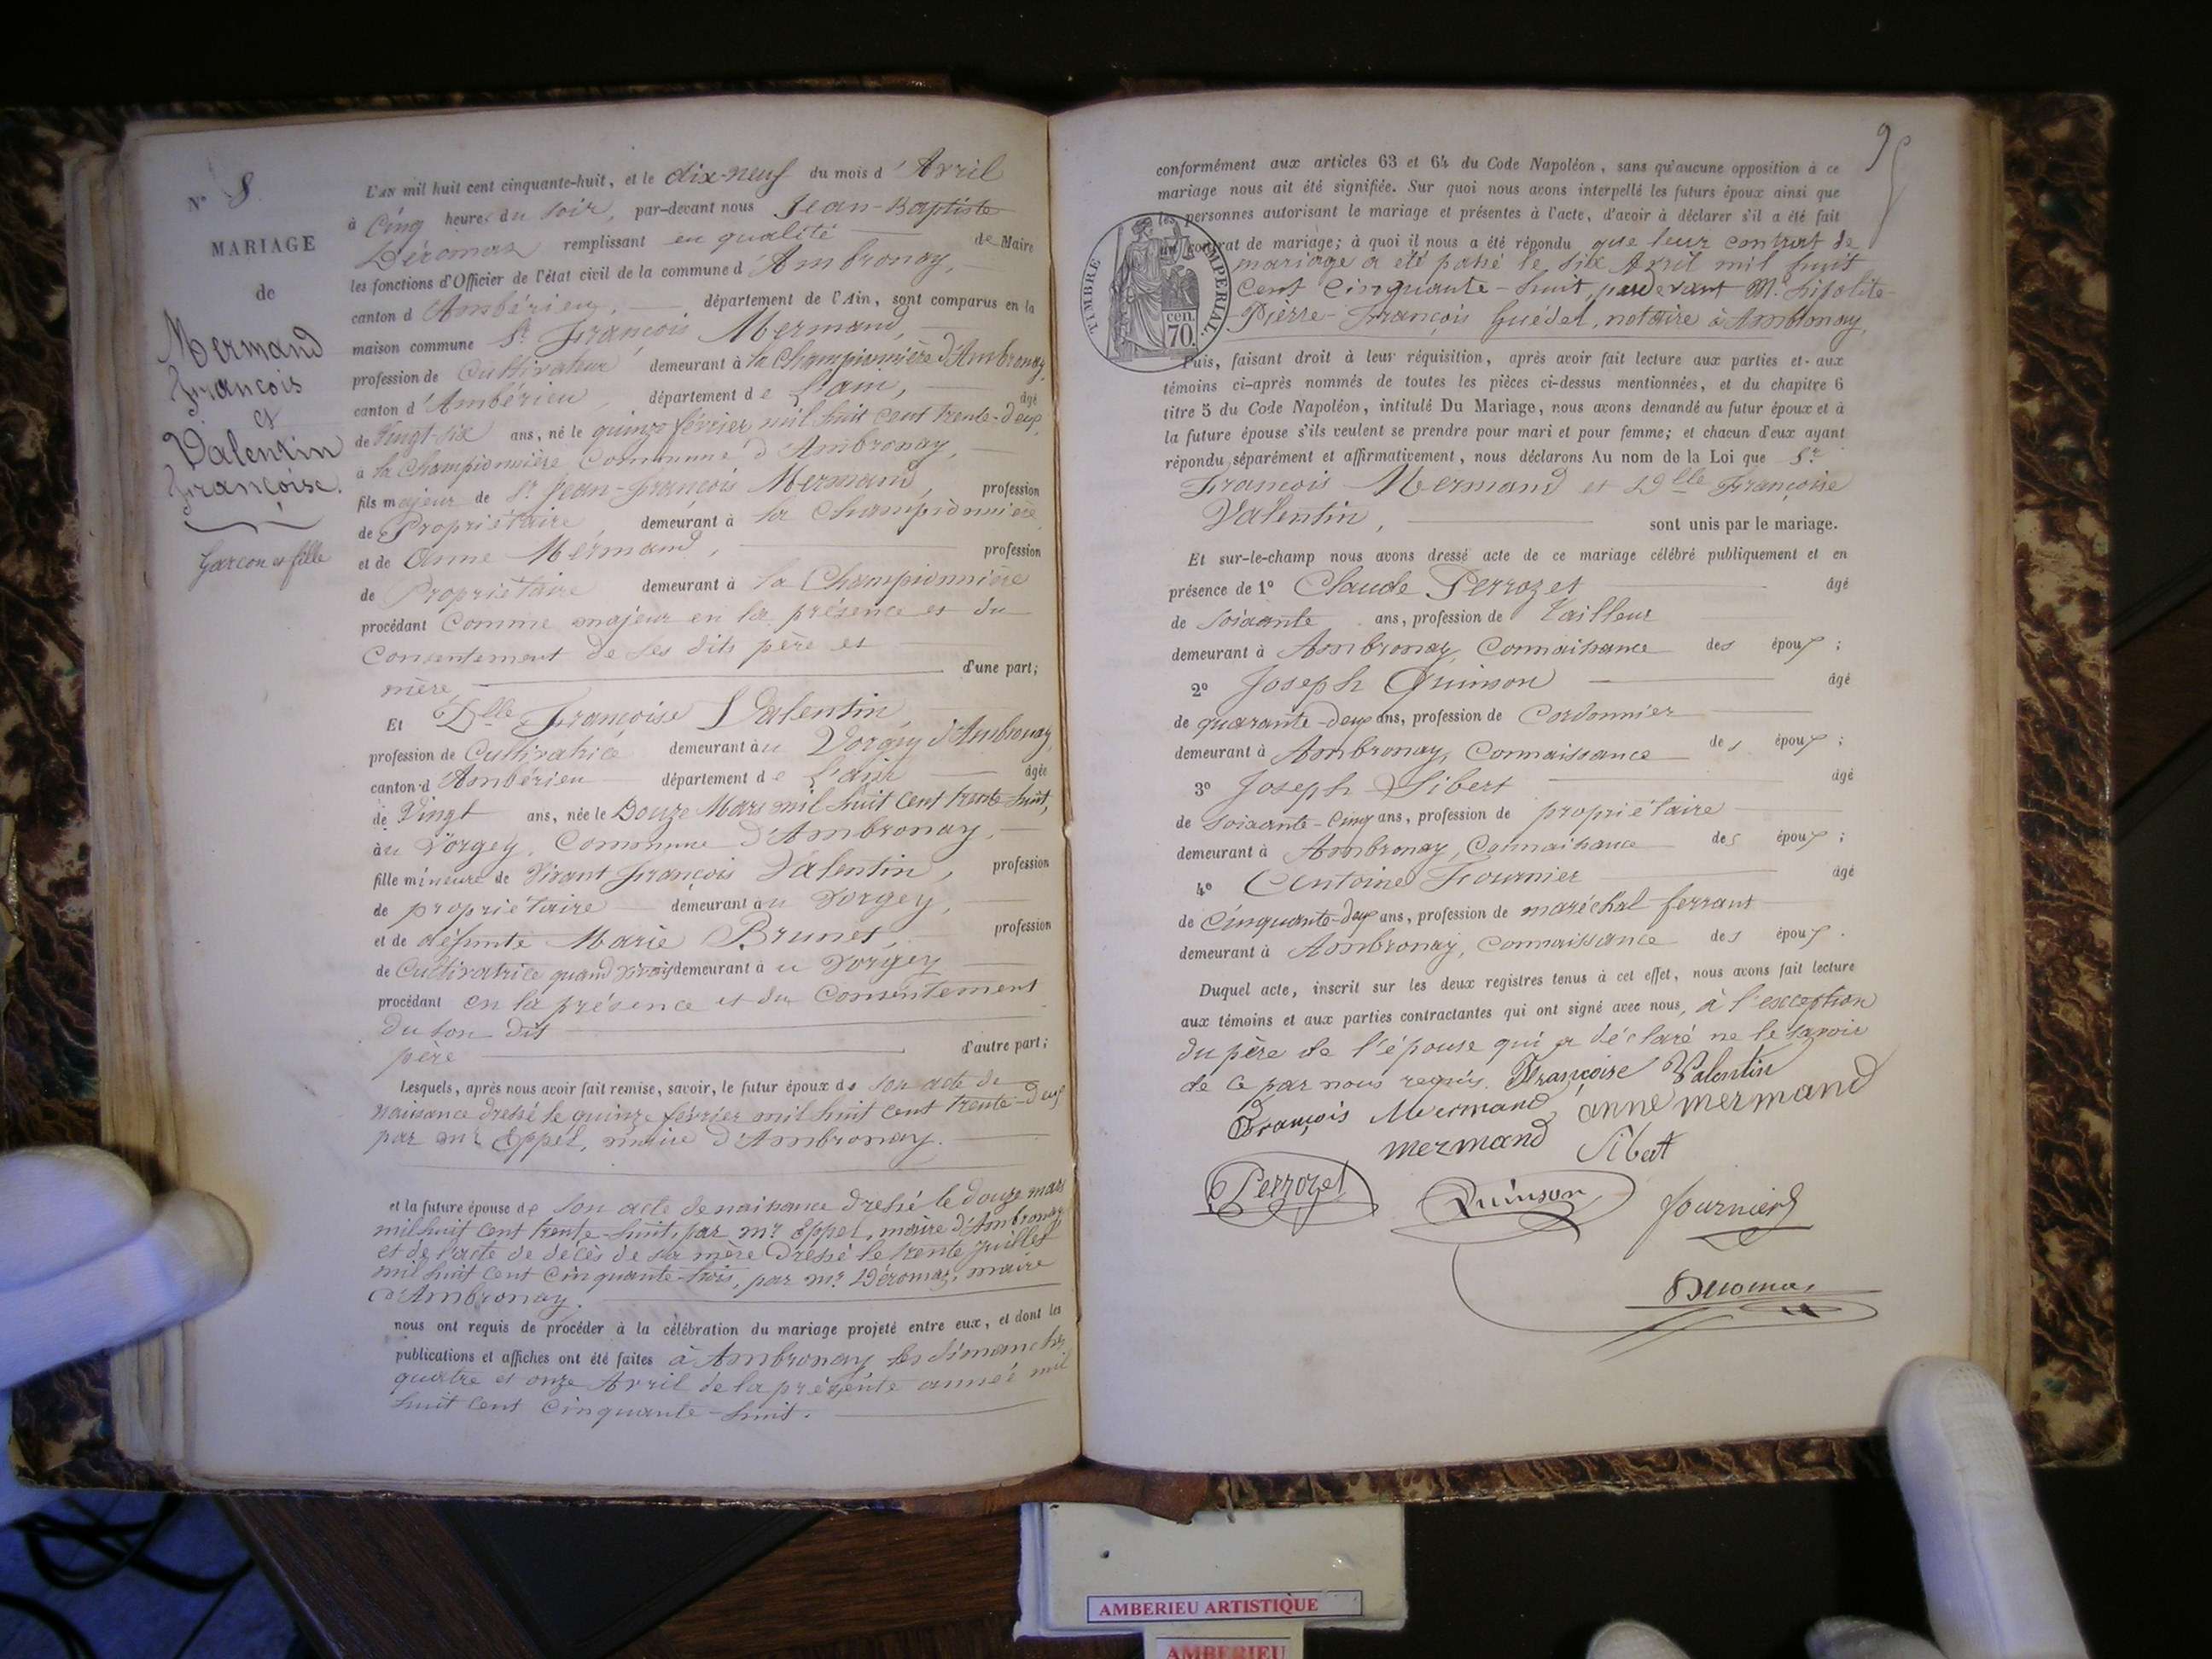 N° 8.
MARIAGE
de
Mermand
François
et
Valentin
Françoise.
Garçon et fille
L'AN mil huit cent cinquante-huit, et le dix-neuf du mois d'Avril
à Cinq heures du soir, par-devant nous Jean-Baptiste
Déromas remplissant en qualité de Maire
les fonctions d'Officier de l'état civil de la commune d'Ambronay,
canton d'Ambérieu, département de l'Ain, sont comparus en la
maison commune Sr. François Mermand,
profession de Cultivateur demeurant à la Championnière d'Ambronay,
canton d'Ambérieu, département de l'ain, âgé
de Vingt-six ans, né le quinze février mil huit cent trente-deux,
à la Championnière, Commune d'Ambronay,
fils majeur de Sr. Jean-François Mermand, profession
de Propriétaire, demeurant à la Championnière
et de Anne Mermand, profession
de Propriétaire demeurant à la Championnière
procédant Comme majeur en la présence et du
Consentement de ses dits père et
mère, d'une part;
Et Dlle Françoise Valentin
profession de Cultivatrice demeurant au Vorgey d'Ambronay,
canton d'Ambérieu département de l'ain âgée
de Vingt ans, née le Douze Mars mil huit cent trente-huit,
au Vorgey, Commune d'Ambronay,
fille mineure de Vivant François Valentin, profession
de propriétaire demeurant au Vorgey,
et de défunte Marie Brunet, profession
de Cultivatrice quand vivait demeurant à u Vorgey
procédant en la présence et du Consentement
du son dit
père d'autre part;
Lesquels, après nous avoir fait remise, savoir, le futur époux de son acte de
naissance dressé le quinze février mil huit cent trente-deux
par mr. Eppel, maire d'Ambronay.
et la future épouse de son acte de naissance dressé le douze mars
mil huit cent trente-huit, par mr. Eppel, maire d'Ambronay
et de l'acte de décès de sa mère dressé le trente juillet
mil huit cent cinquante-trois, par mr. Déromas, maire
d'Ambronay.
nous ont requis de procéder à la célébration du mariage projeté entre eux, et dont les
publications et affiches ont été faites à Ambronay les dimanches
quatre et onze Avril de la présente année mil
huit cent cinquante-huit.
conformément aux articles 63 et 64 du Code Napoléon, sans qu'aucune opposition à ce
mariage nous ait été signifiée. Sur quoi nous avons interpellé les futurs époux ainsi que
les personnes autorisant le mariage et présentes à l'acte, d'avoir à déclarer s'il a été fait
un contrat de mariage; à quoi il nous a été répondu que leur contrat de
mariage a été passé le six Avril mil huit
Cent Cinquante-huit, pardevant Me. hipolite
Pierre-François Guédel, notaire à Ambronay,
TIMBRE IMPERIAL.
cen.
70.
Puis, faisant droit à leur réquisition, après avoir fait lecture aux parties et aux
témoins ci-après nommés de toutes les pièces ci-dessus mentionnées, et du chapitre 6
titre 5 du Code Napoléon, intitulé Du Mariage, nous avons demandé au futur époux et à
la future épouse s'ils veulent se prendre pour mari et pour femme; et chacun d'eux ayant
répondu séparément et affirmativement, nous déclarons Au nom de la Loi que Sr.
François Mermand et Dlle Françoise
Valentin, sont unis par le mariage.
Et sur-le-champ nous avons dressé acte de ce mariage célébré publiquement et en
présence de 1° Claude Perrozet âgé
de soixante ans, profession de Tailleur
demeurant à Ambronay, Connaissance des époux;
2° Joseph Quinson âgé
de quarante-deux ans, profession de Cordonnier
demeurant à Ambronay, Connaissance des époux;
3° Joseph Sibert âgé
de soixante-cinq ans, profession de propriétaire
demeurant à Ambronay, Connaissance des époux;
4° Antoine Fournier âgé
de Cinquante-deux ans, profession de maréchal ferrant
demeurant à Ambronay, Connaissance des époux.
Duquel acte, inscrit sur les deux registres tenus à cet effet, nous avons fait lecture
aux témoins et aux parties contractantes qui ont signé avec nous, à l'exception
du père de l'épouse qui a déclaré ne le savoir
de ce par nous requis. Françoise Valentin
François Mermand anne mermand
mermand Sibert
Perrozet Quinson fournier
Deromas
AMBERIEU ARTISTIQUE
AMBERIEU